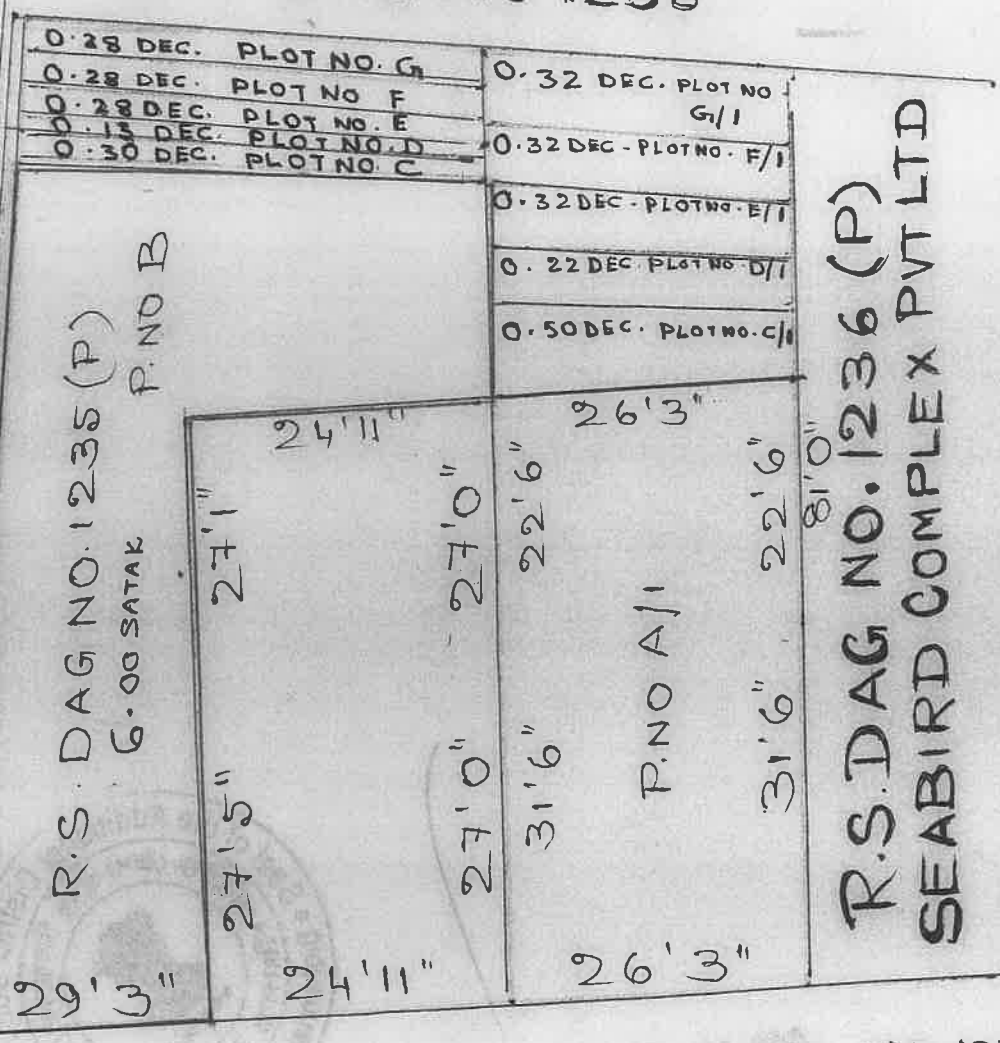 0.28 DEC. PLOT NO. G
0.28 DEC. PLOT NO F
0.28 DEC. PLOT NO. E
0.13 DEC. PLOT NO. D
0.30 DEC. PLOT NO. C
0.32 DEC. PLOT NO
G/1
0.32 DEC - PLOT NO. F/1
0.32 DEC - PLOT NO. E/1
0.22 DEC. PLOT NO. D/1
0.50 DEC. PLOT NO. C/1
R.S. DAG NO. 1235 (P)
6.00 SATAK
P. NO B
24'11"
26'3"
27'1"
27'0"
22'6"
22'6"
81'0"
P. NO A/1
27'5"
27'0"
31'6"
31'6"
29'3"
24'11"
26'3"
R.S. DAG NO. 1236 (P)
SEABIRD COMPLEX PVT LTD